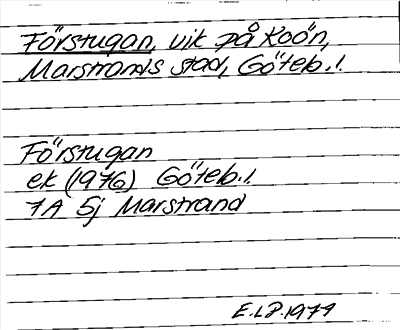 Förstugan, vik på Koön,
Marstrands stad, Göteb. l.
Förstugan
ek (1976) Göteb. l.
7A 5j Marstrand
E.LP. 1977